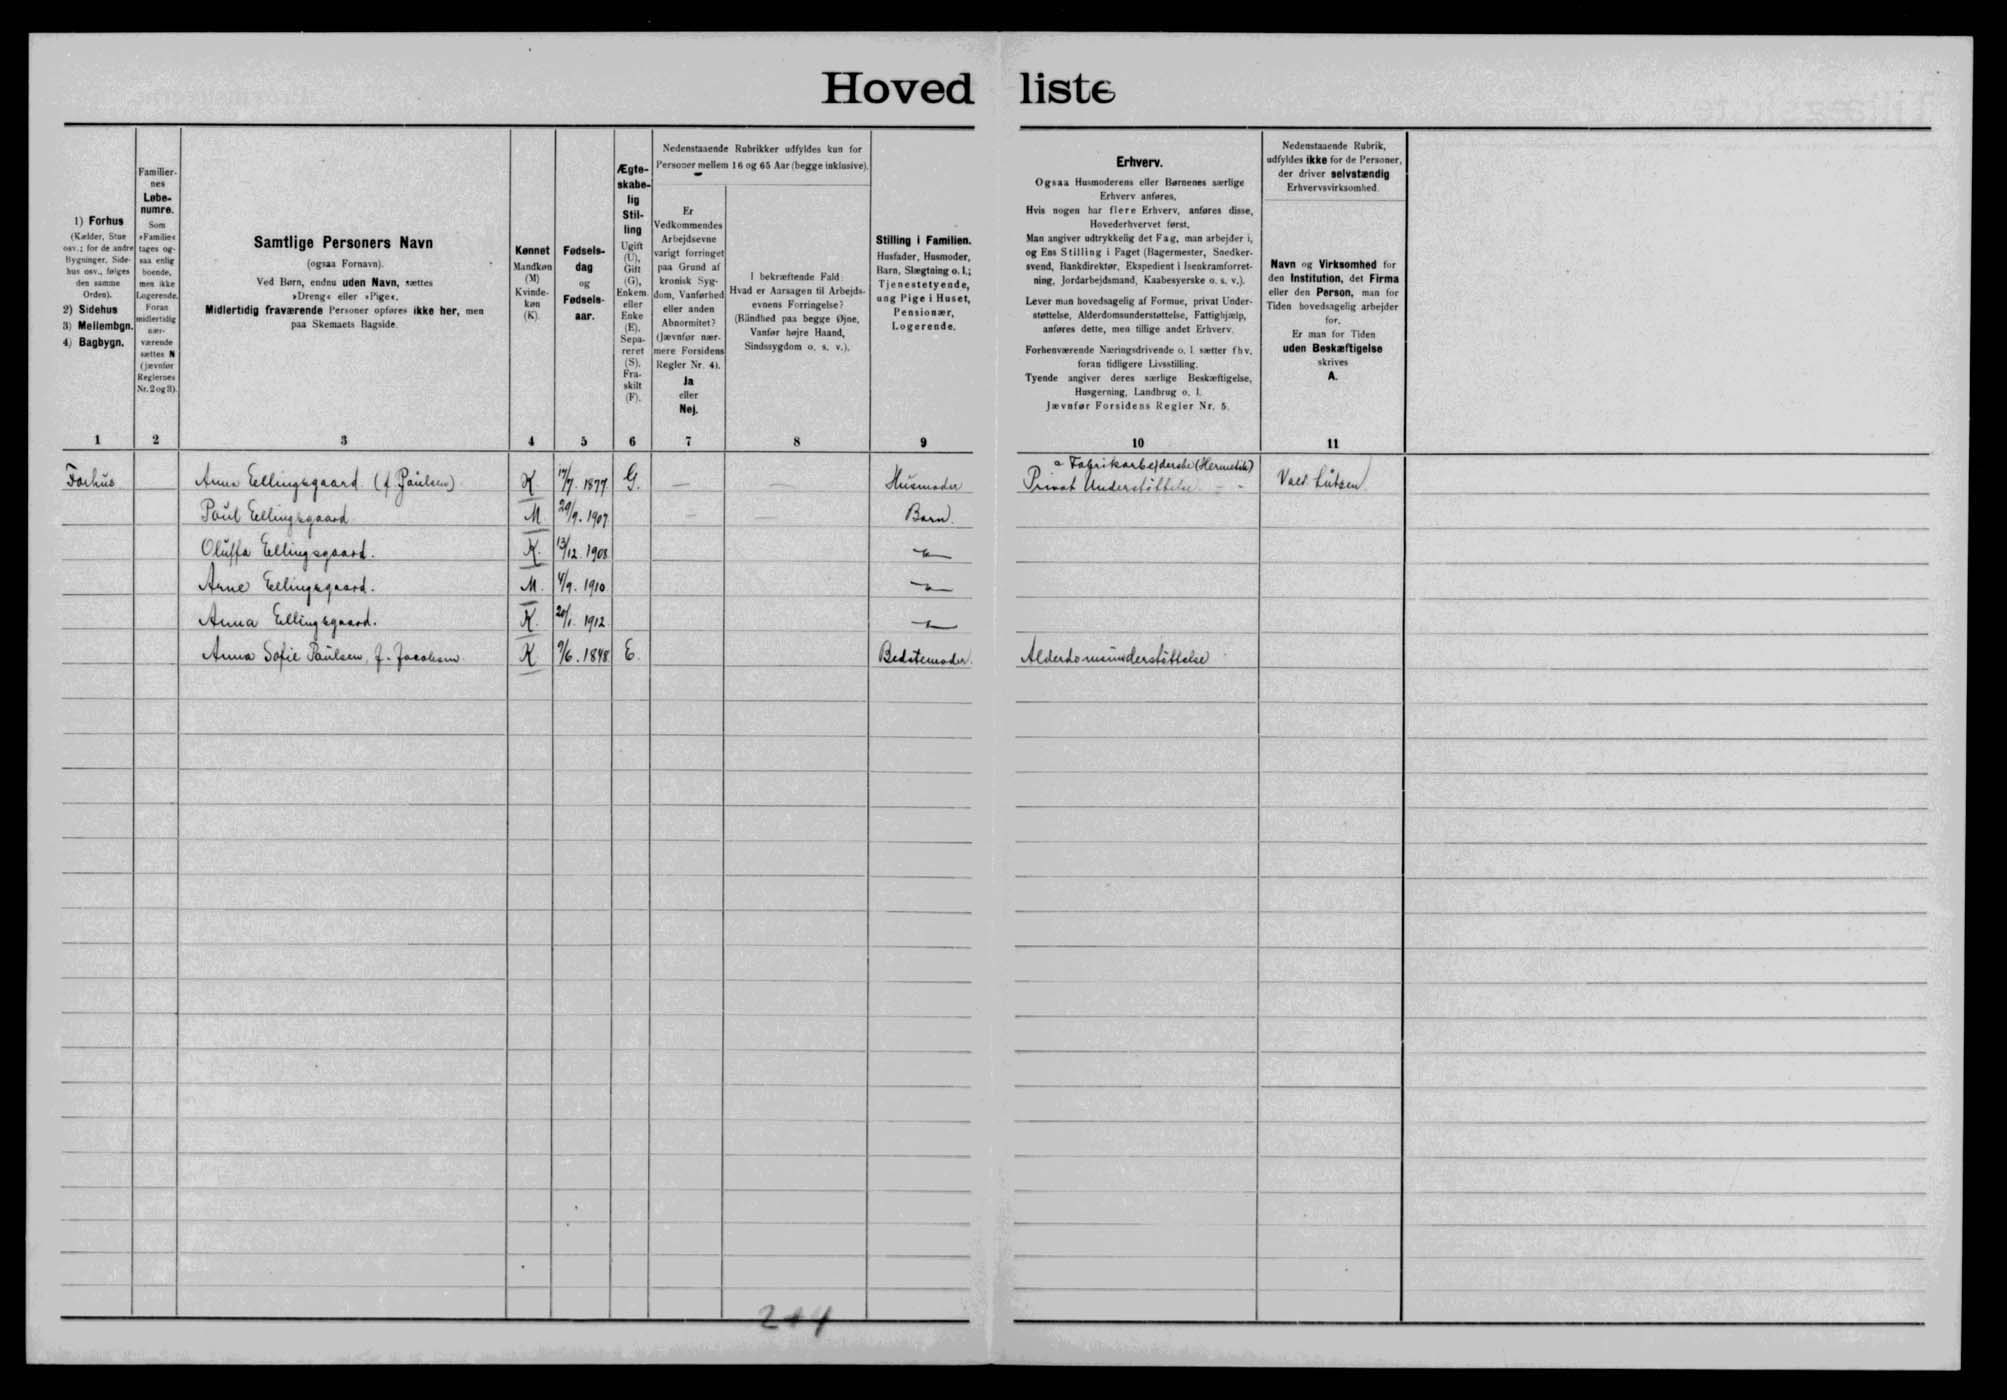 Hovedliste
1) Forhus
(Kælder, Stue
osv.; for de andre
Bygninger, Side-
hus osv., følges
den samme
Orden).
2) Sidehus
3) Mellembgn.
4) Bagbygn.
Familier-
nes
Løbe-
numre.
Som
»Familie«
tages og-
saa enlig
boende,
men ikke
Logerende.
Foran
midlertidig
nær-
værende
sættes N
(jævnfør
Reglernes
Nr. 2 og 3).
Samtlige Personers Navn
(ogsaa Fornavn).
Ved Børn, endnu uden Navn, sættes
»Dreng« eller »Pige«.
Midlertidig fraværende Personer opføres ikke her, men
paa Skemaets Bagside.
Kønnet
Mandkøn
(M)
Kvinde-
køn
(K).
Fødsels-
dag
og
Fødsels-
aar.
Ægte-
skabe-
lig
Stil-
ling
Ugift
(U),
Gift
(G),
Enkem.
eller
Enke
(E),
Sepa-
reret
(S),
Fra-
skilt
(F).
Nedenstaaende Rubrikker udfyldes kun for
Personer mellem 16 og 65 Aar (begge inklusive).
Er
Vedkommendes
Arbejdsevne
varigt forringet
paa Grund af
kronisk Syg-
dom, Vanførhed
eller anden
Abnormitet?
(Jævnfør nær-
mere Forsidens
Regler Nr. 4).
Ja
eller
Nej.
I bekræftende Fald:
Hvad er Aarsagen til Arbejds-
evnens Forringelse?
(Blindhed paa begge Øjne,
Vanfør højre Haand,
Sindssygdom o. s. v.).
Stilling i Familien.
Husfader, Husmoder,
Barn, Slægtning o. l.;
Tjenestetyende,
ung Pige i Huset,
Pensionær,
Logerende.
Erhverv.
Ogsaa Husmoderens eller Børnenes særlige
Erhverv anføres.
Hvis nogen har flere Erhverv, anføres disse,
Hovederhvervet først.
Man angiver udtrykkelig det Fag, man arbejder i,
og Ens Stilling i Faget (Bagermester, Snedker-
svend, Bankdirektør, Ekspedient i Isenkramforret-
ning, Jordarbejdsmand, Kaabesyerske o. s. v.).
Lever man hovedsagelig af Formue, privat Under-
støttelse, Alderdomsunderstøttelse, Fattighjælp,
anføres dette, men tillige andet Erhverv.
Forhenværende Næringsdrivende o. l. sætter fhv.
foran tidligere Livsstilling.
Tyende angiver deres særlige Beskæftigelse,
Husgerning, Landbrug o. l.
Jævnfør Forsidens Regler Nr. 5.
Nedenstaaende Rubrik,
udfyldes ikke for de Personer,
der driver selvstændig
Erhvervsvirksomhed.
Navn og Virksomhed for
den Institution, det Firma
eller den Person, man for
Tiden hovedsagelig arbejder
for.
Er man for Tiden
uden Beskæftigelse
skrives
A.
1 2 3 4 5 6 7 8 9 10 11
Forhus Anna Ellingsgaard (f. Paulsen) K 17/7. 1877 G. — — Husmoder Fabrikarbejderske (Hermetik)
Privat Understøttelse Vald. Lützen
Poul Ellingsgaard M 29/9. 1907 — Barn.
Oluffa Ellingsgaard. K. 13/12. 1908 — " —
Arne Ellingsgaard. M. 4/9. 1910 — " —
Anna Ellingsgaard. K. 20/1. 1912 — " —
Anna Sofie Paulsen, f. Jacobsen K 9/6. 1848 E. Bedstemoder. Alderdomsunderstøttelse